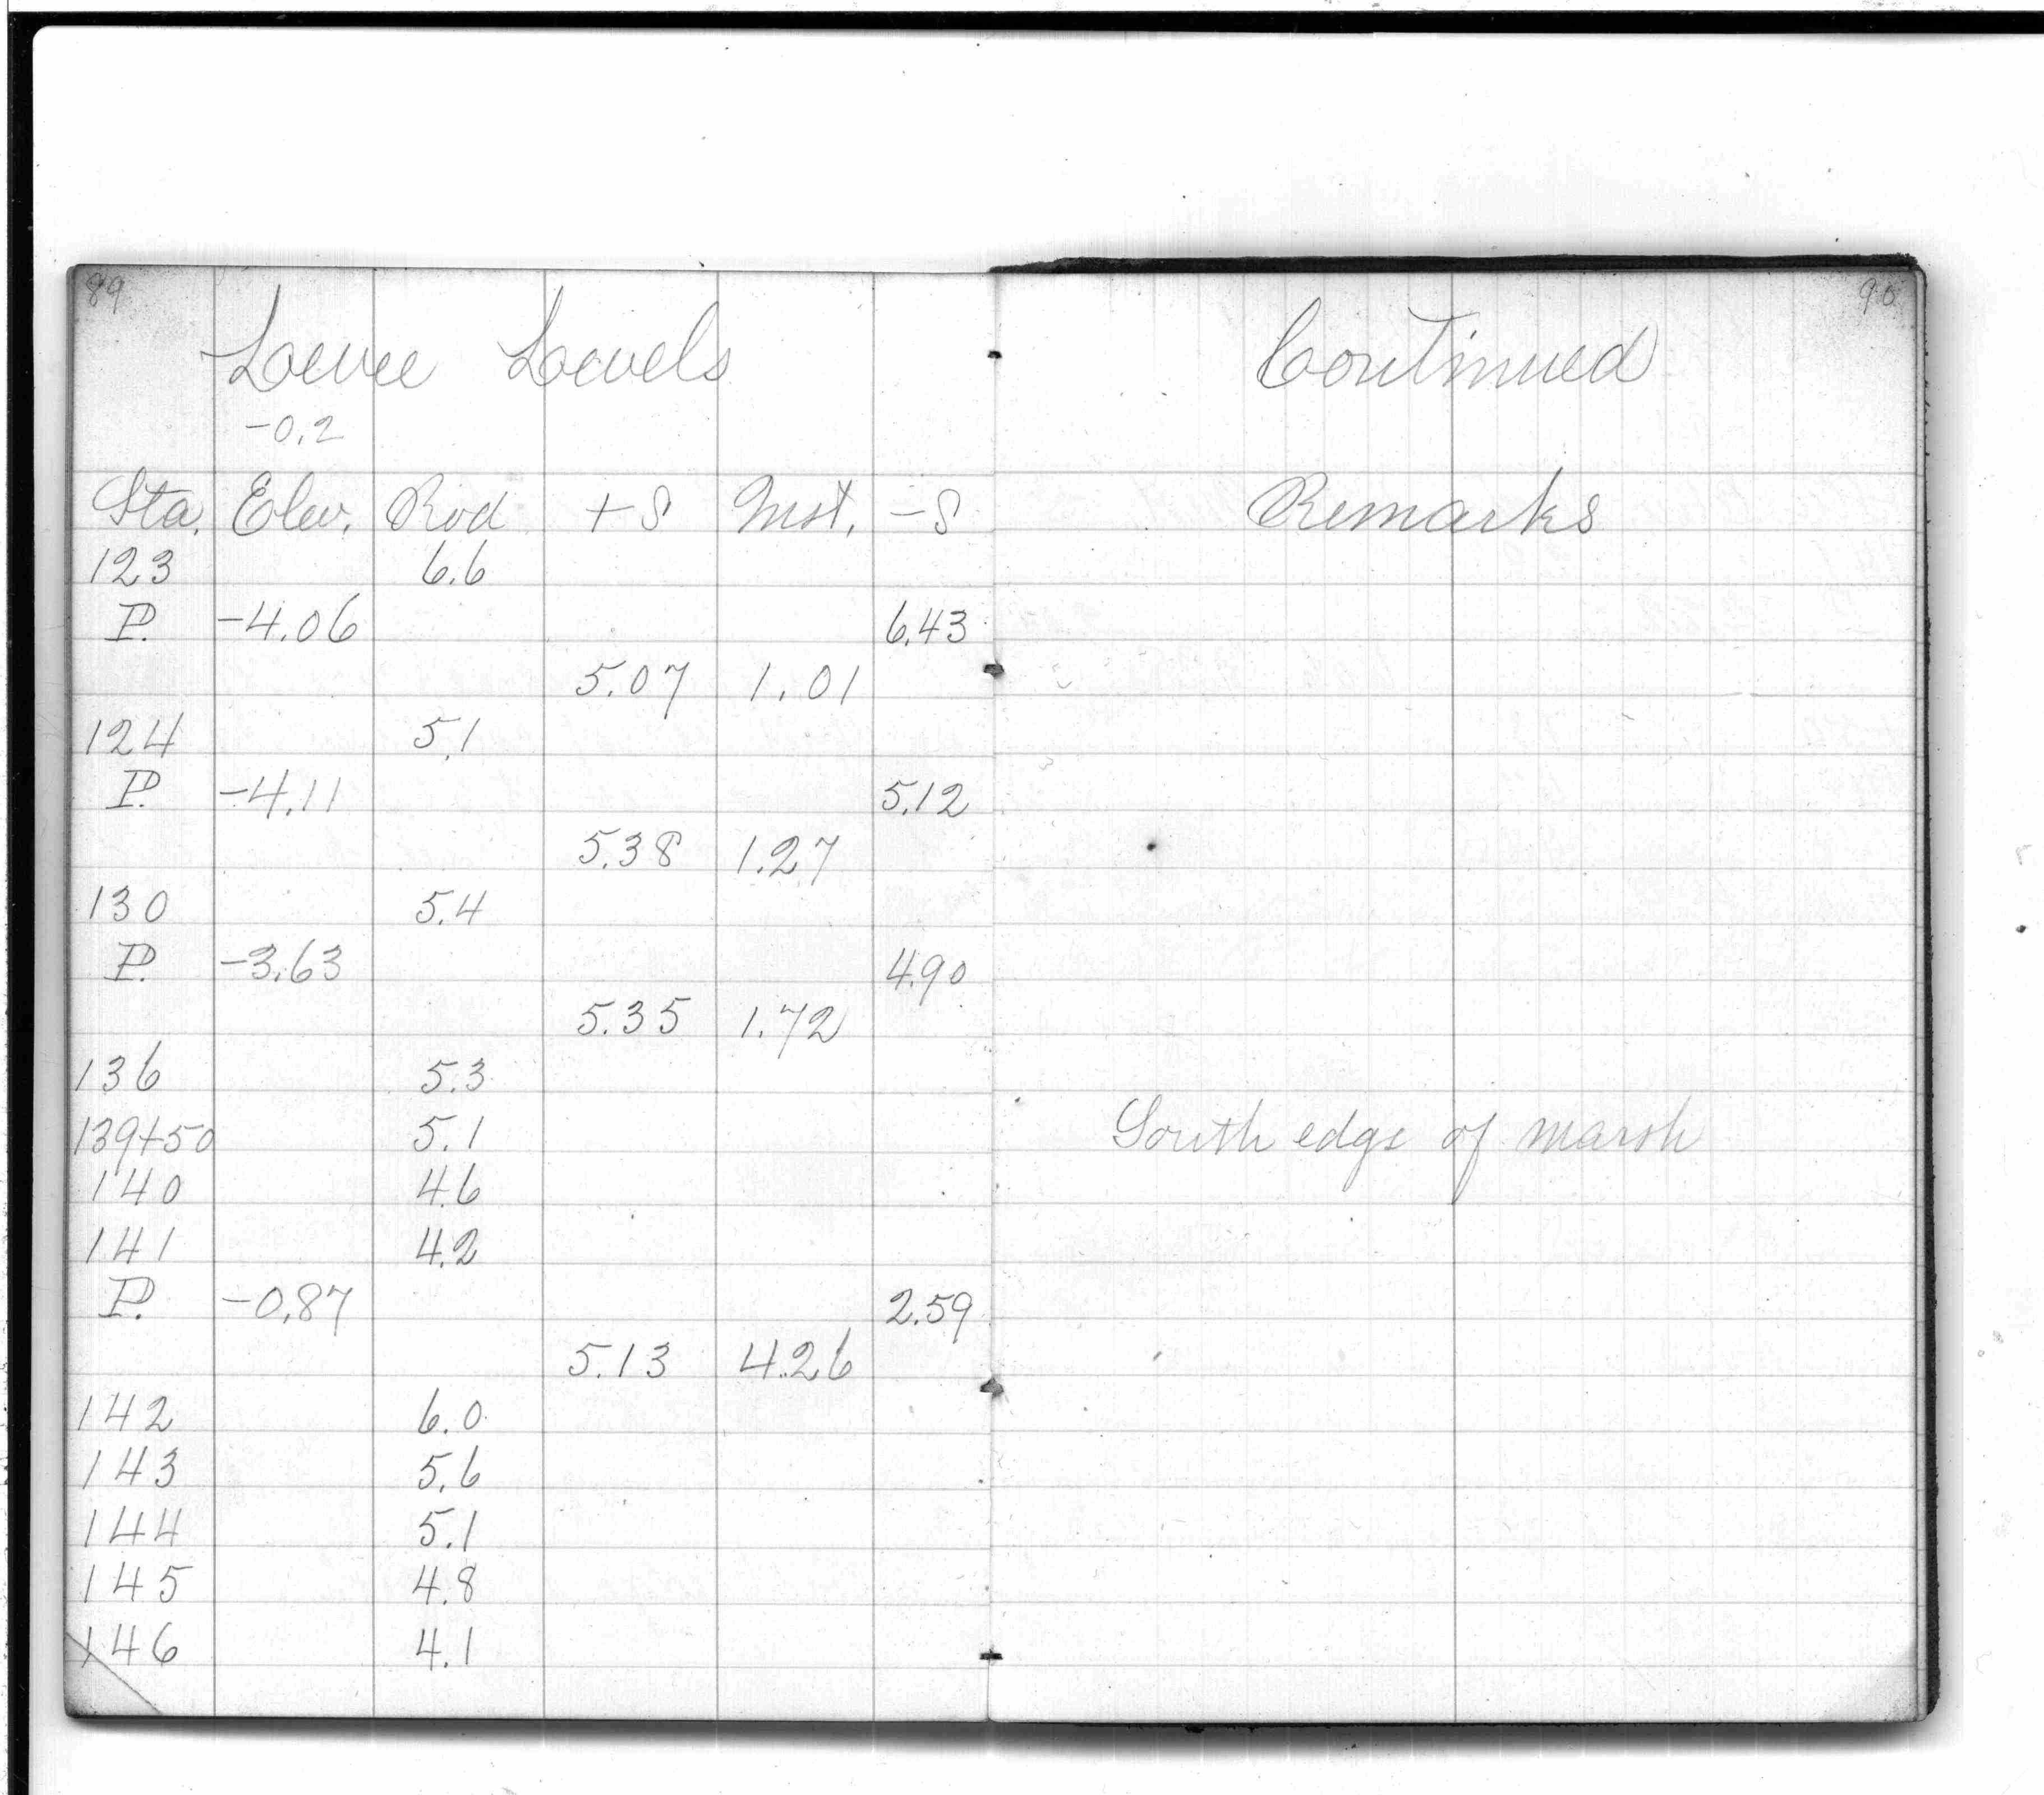 89
Levee Levels
-0.2
Sta. Elev. Rod +S Inst. -S
123 6.6
P. -4.06 6.43
5.07 1.01
124 5.1
P. -4.11 5.12
5.38 1.27
130 5.4
P. -3.63 4.90
5.35 1.72
136 5.3
139+50 5.1
140 4.6
141 4.2
P. -0.87 2.59
5.13 4.26
142 6.0
143 5.6
144 5.1
145 4.8
146 4.1
90
Continued
Remarks
South edge of marsh